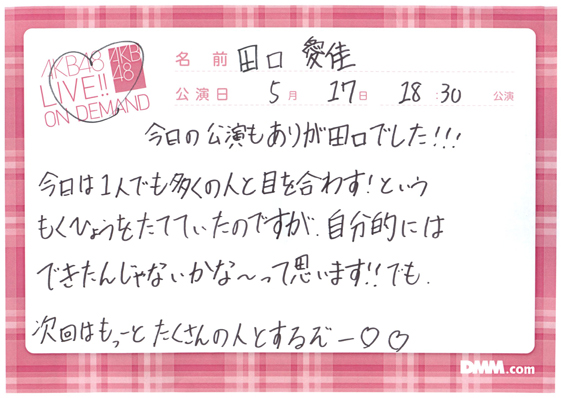 AKB48
LIVE!!
ON DEMAND
AKB
48
名 前 田口 愛佳
公演日 5月 17日 18:30 公演
今日の公演もありが田口でした!!!
今日は1人でも多くの人と目を合わす!という
もくひょうをたてていたのですが、自分的には
できたんじゃないかな〜って思います!!でも、
次回はもっーとたくさんの人とするぞー♡♡
DMM.com